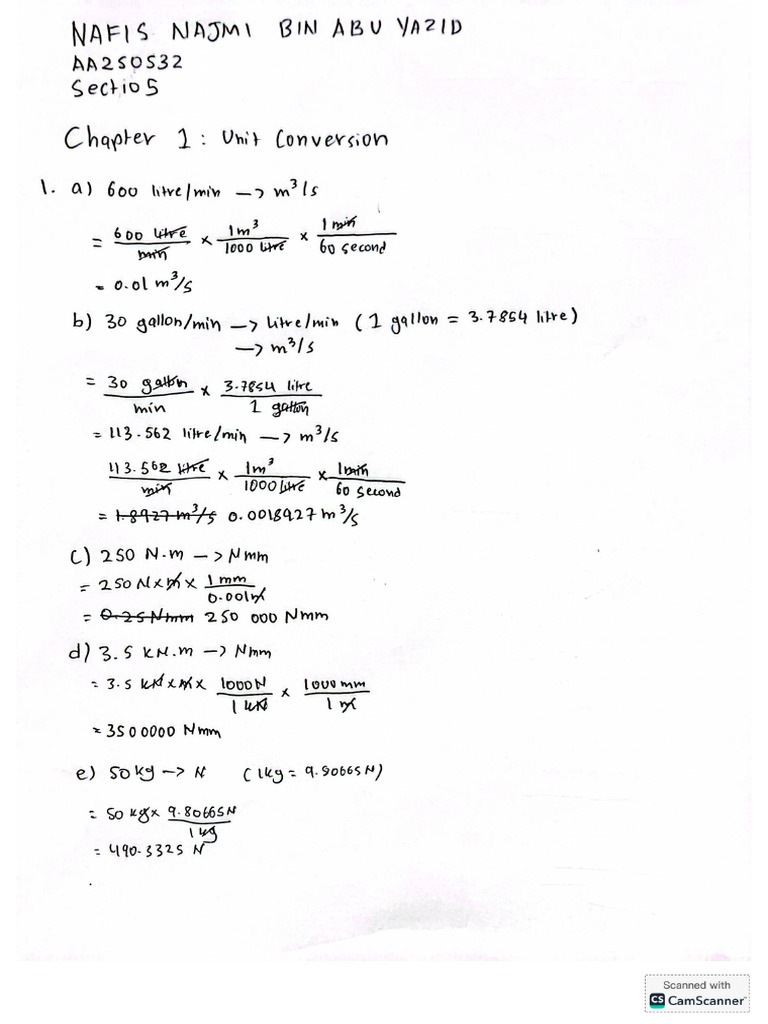 NAFIS NAJMI BIN ABU YAZID
AA250532
Sectio 5
Chapter 1: Unit Conversion
1. a) 600 litre/min —> m³/s
= 600 litre/min × 1m³/1000 litre × 1 min/60 second
= 0.01 m³/s
b) 30 gallon/min —> litre/min (1 gallon = 3.7854 litre)
—> m³/s
= 30 gallon/min × 3.7854 litre/1 gallon
= 113.562 litre/min —> m³/s
113.562 litre/min × 1m³/1000 litre × 1min/60 second
= 1.8927 m³/s 0.0018927 m³/s
c) 250 N.m —> Nmm
= 250 N×m × 1mm/0.001m
= 0.25Nmm 250 000 Nmm
d) 3.5 kN.m —> Nmm
= 3.5 kN×m× 1000N/1 kN × 1000mm/1m
= 3500000 Nmm
e) 50kg —> N (1kg = 9.80665N)
= 50 kg× 9.80665N/1kg
= 490.3325 N
Scanned with
CS CamScanner